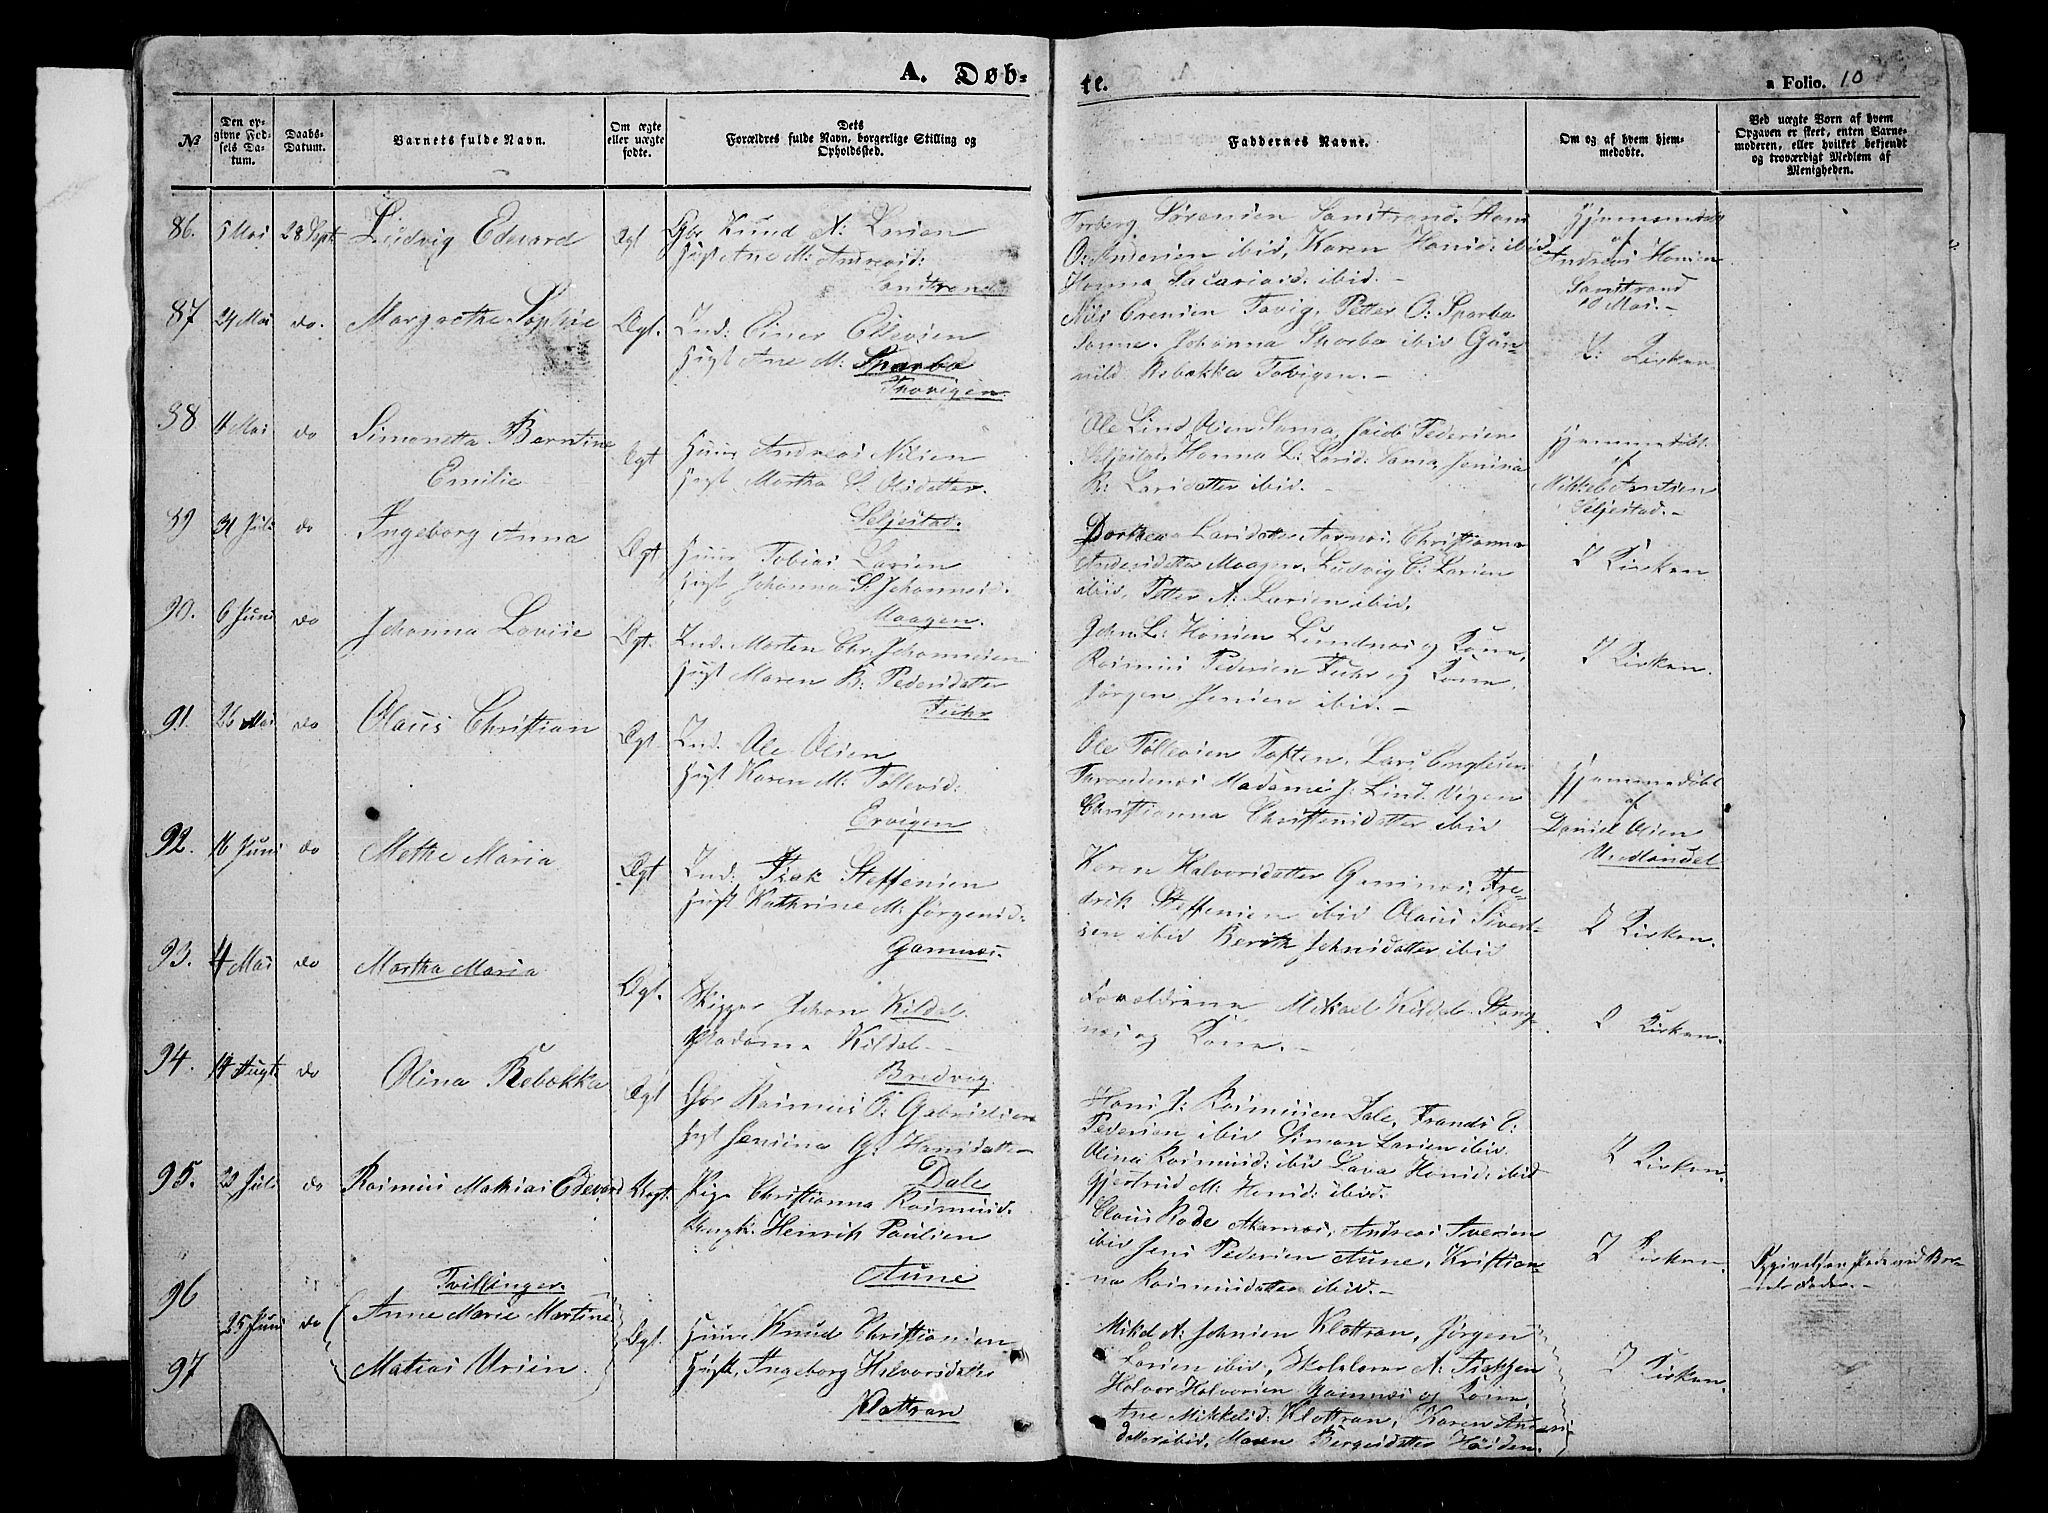 A. Døb-
te.
a Folio. 10
No
Den op-
givne Fød-
sels Da-
tum.
Daabs-
Datum.
Barnets fulde Navn.
Om ægte
eller uægte
fødte.
Dets
Forældres fulde Navn, borgerlige Stilling og
Opholdssted.
Faddernes Navne.
Om og af hvem hjem-
medøbte.
Ved uægte Børn af hvem
Opgaven er skeet, enten Barne-
moderen, eller hvilket bekjendt
og troværdigt Medlem af
Menigheden.
86. 5 Mai 28 Sept Ludvig Edvard Ægt Gbr Knud N: Larsen
Hust Ane M: Andreasd:
Sandstrand
Torberg Sørensen Sandstrand, Hans
O: Andersen ibid, Karen Hansd: ibid
Hanna Sacariasd. ibid. -
Hjemmedøbt
af
Andreas Hansen
Sandstrand
10 Mai. -
87 24 Mai do. Margrethe Sophie Ægt. Ind: Einer Ellevsen
Hust Ane M: Sparbo
Trovigen.
Nils Erensen Tovig, Petter O: Sparbo
Sama. Johanna Sparbo ibid Gün-
nild Rebekka Tovigen. -
I Kirken
88 11 Mai do Simonetta Berntine
Emilie
Ægt Huus Andreas Nilsen
Hust Martha S. Olsdatter.
Seljestad.
Ole Lind Olsen Sama, Jacob Pedersen
Seljestad, Hanna L: Larsd: Sama, Jensina
B: Larsdatter ibid. -
Hjemmedøbt
af
Mikkel Arntsen
Seljestad. -
89 31 Juli do Ingeborg Anna Ægt Huus Tobias Larsen
Hust Johanna S. Johannesd.
Maagen.
Dorthea Larsdatter Aarnæs, Christianna
Andersdatter Maagen, Ludvig C: Larsen
ibid, Petter A: Larsen ibid.
I Kirken
90. 6 Juni do Johanna Lovise Ægt. Ind. Morten Chr. Johannesen
Hust Maren B: Pedersdatter
Fuhr
John L: Hansen Lundnæs og Kone,
Rasmus Pedersen Fuhr og Kone
Jørgen Jensen ibid. -
I Kirken.
91. 26 Mai do Olaus Christian Ægt. Ind. Ole Olsen
Hust Karen M: Tollevsd:
Ervigen
Ole Tollevsen Toften, Lars Engelsen
Tarandenæs Madame J: Lind Vigen
Christianna Christensdatter ibid
Hjemmedøbt
af
Daniel Olsen
Undlandet
92. 16 Juni do Methe Maria Ægt Ind: Isak Steffensen
Hust Kathrine M: Jørgensd:
Gamnæs.
Karen Halvorsdatter Gamnæs, Fre-
drik Steffensen ibid Olaus Sivert-
sen ibid Berith Johnsdatter ibid
I Kirken.
93. 4 Mai do Martha Maria Ægt. Skipper Johan Kildal
Madame Kildal -
Bredvog
Forældrene Mikael Kildal Stang-
næs og Kone. -
I Kirken.
94. 14 Augt do Olina Rebekka Ægt Gbr Rasmus O: Gabrielsen
Hust Jensina G: Hansdatter
Dale
Hans J: Rasmussen Dale, Frands E:
Pedersen ibid Simon Larsen ibid.
Olina Rasmusd: ibid Lava Hansd: ibid
Gjertrud M: Hansd: ibid.
I Kirken.
95. 23 Juli do Rasmus Mathias Edevard Uægt. Pige Christianna Rasmusd.
Ungk. Henrik Paulsen
Aune
Claus Rode Akarnæs, Andreas Iversen
ibid Jens Pedersen Aune, Kristian-
na Rasmusdatter ibid. -
I Kirken.
96
97
25 Juni do
Tvillinger.
Anne Marie Martine
Matias Ursin
Ægt. Huus Knud Christiansen
Hust. Ingeborg Halvorsdatter
Klottran
Mikel A: Johnsen Klottran, Jørgen
Larsen ibid, Skolelærer A: Isaksen
Halvor Halvorsen Gamnæs og Kone,
Ane Mikkelsd: Klottran, Karen Anders-
datter ibid, Maren Bergesdatter Høiden.
I Kirken.